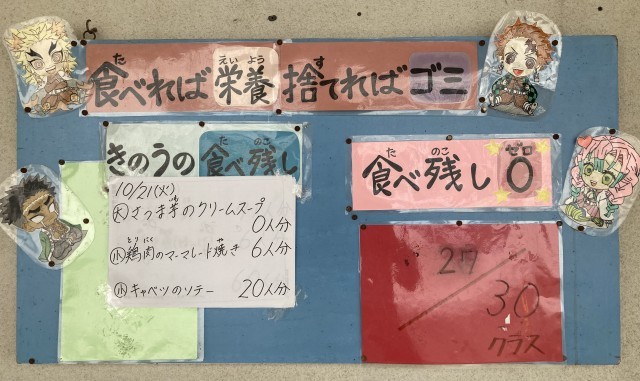 食べれば栄養 捨てればゴミ
きのうの食べ残し
10/21(火)
大 さつま芋のクリームスープ
0人分
小 鶏肉のマーマレード焼き 6人分
小 キャベツのソテー 20人分
食べ残し0
27/30
クラス